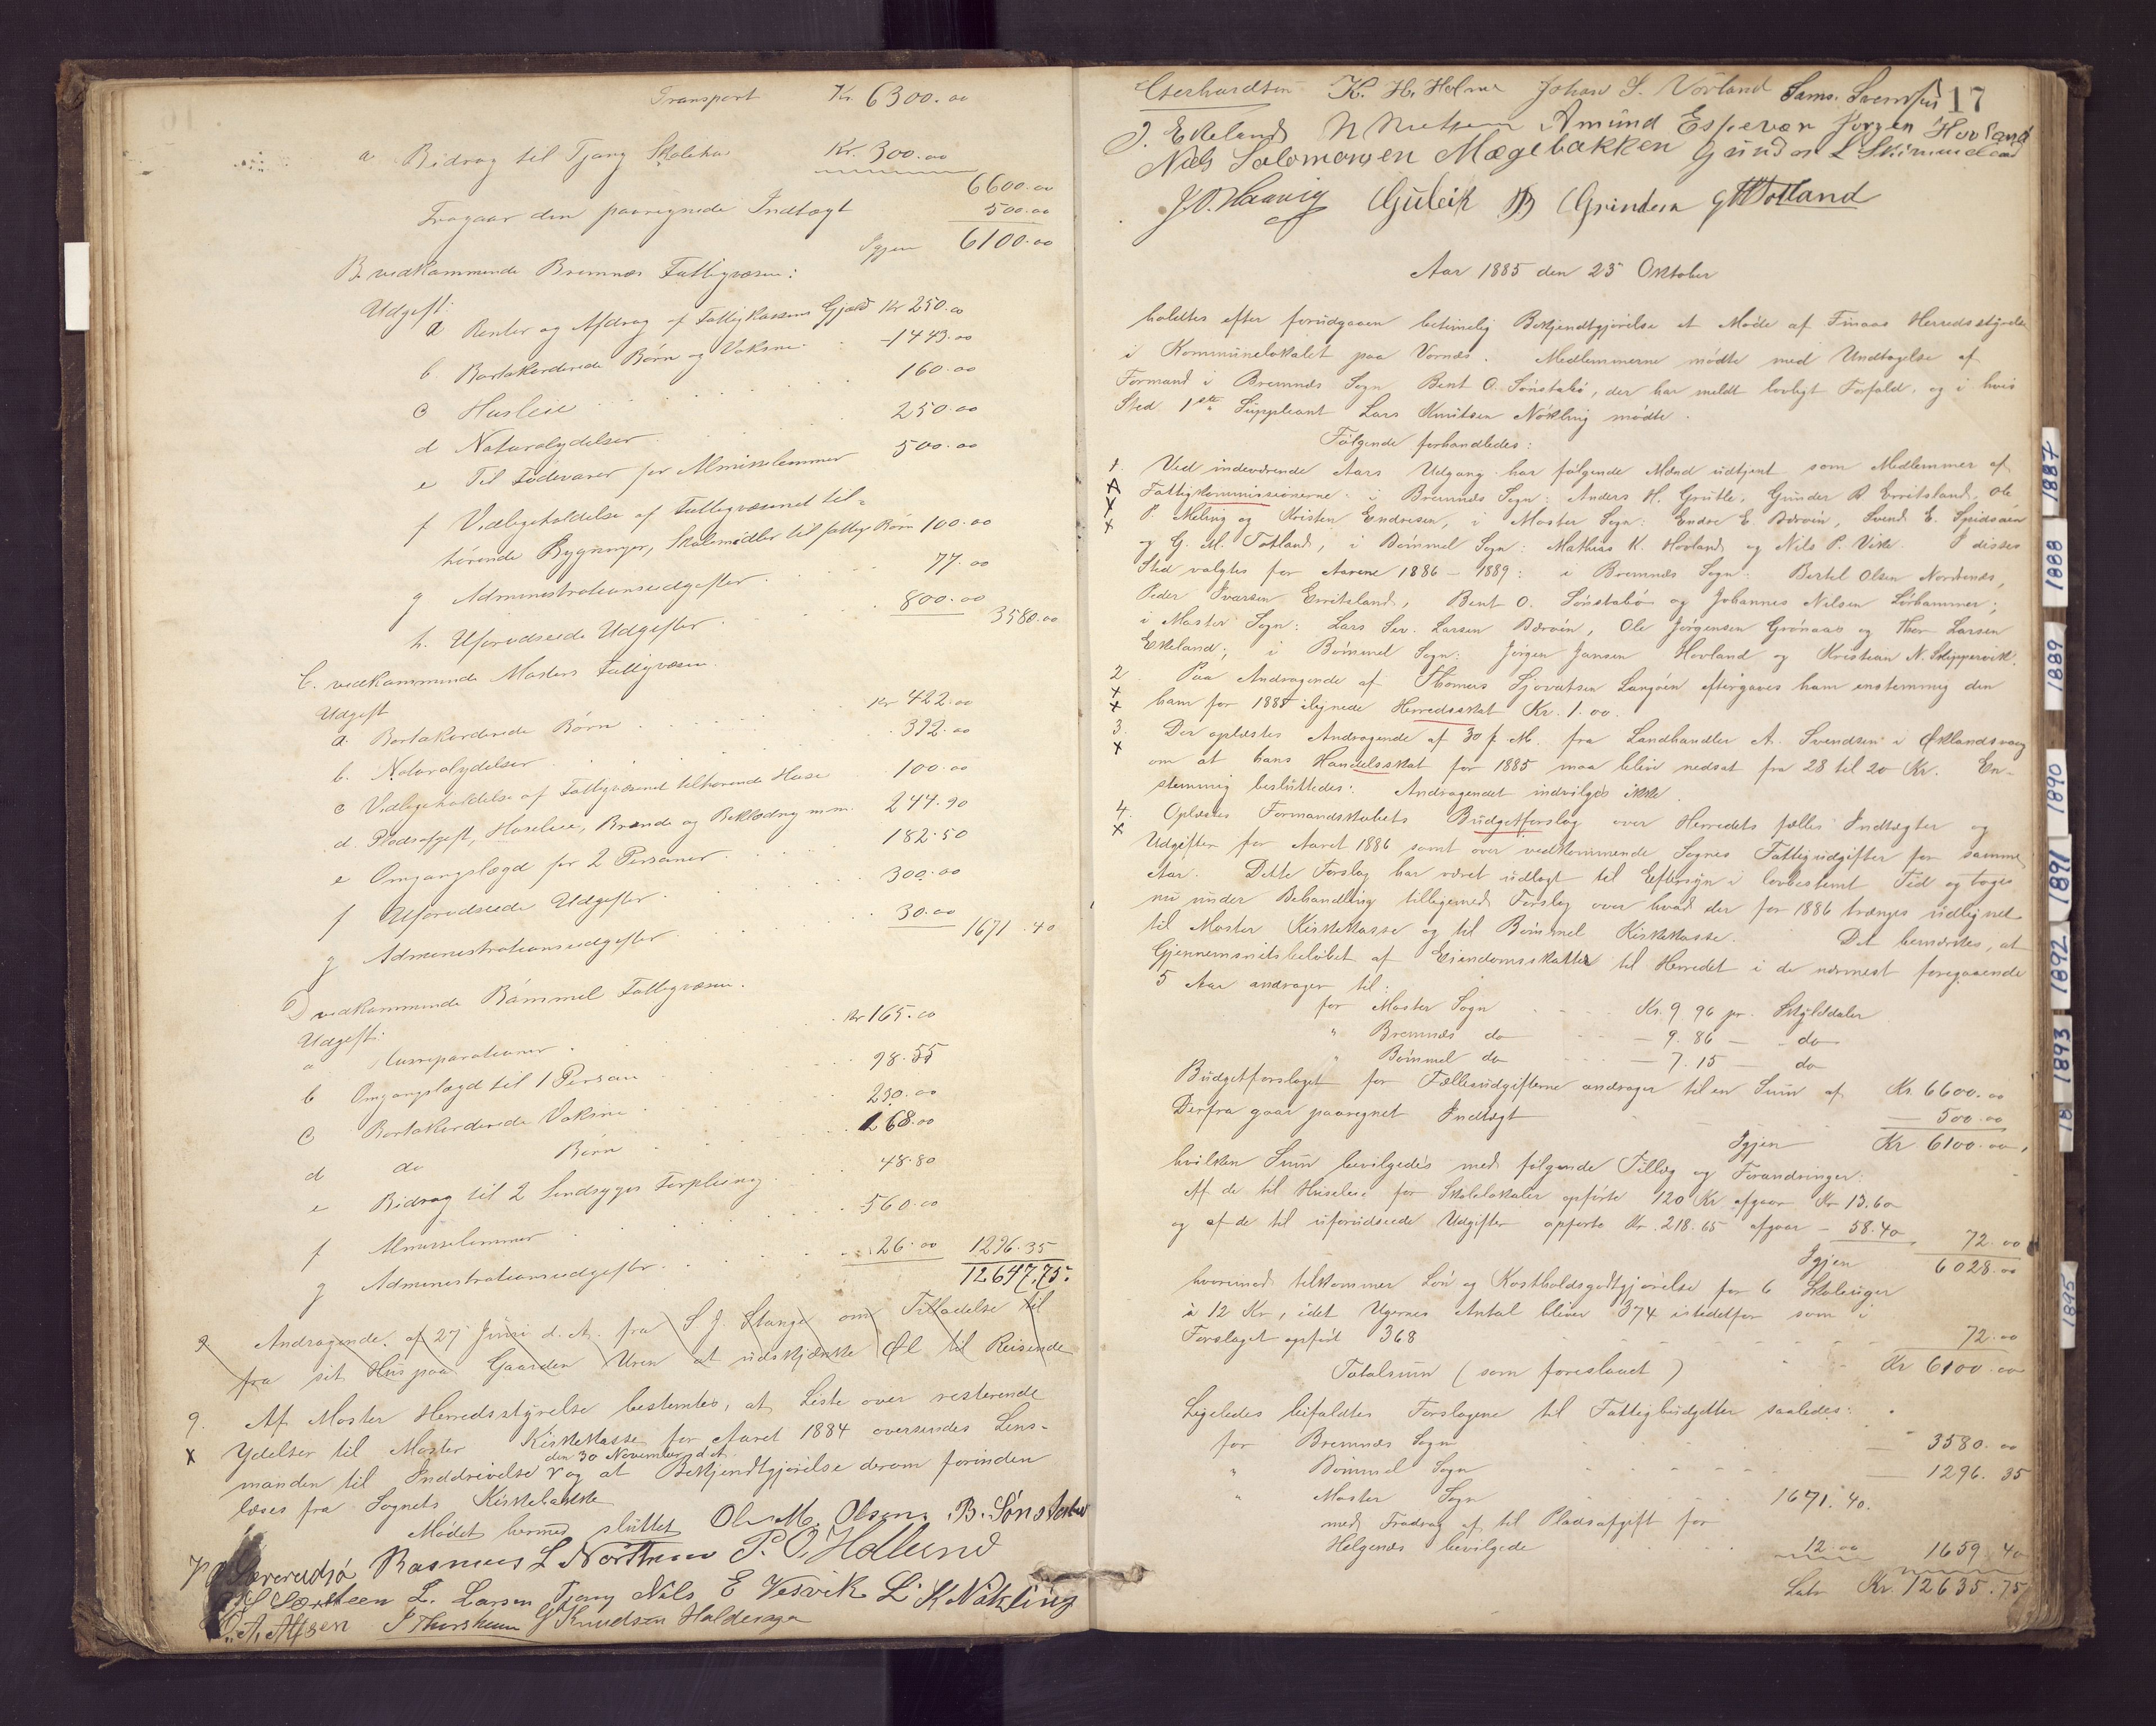 Transport Kr. 6300.00
a Bidrag til Tjang Skolehus Kr. 300.00
6600.00
Fragaar den paaregnede Indtægt 500.00
Igjen 6100.00
B. vedkommende Bremnæs Fattigvæsen:
Udgift:
a Renter og Afdrag af Fattigkassens Gjæld Kr 250.00
b. Bortakorderede Børn og Voksne - 1443.00
c Husleie 160.00
d Naturalydelser 250.00
e Til Fødevarer for Almisselemmer 500.00
f Vedligeholdelse af Fattigvæsenet til-
hørende Bygninger, Skolemidler til fattige Børn 100.00
g Administrationsudgifter 77.00
h. Uforudseede Udgifter 800.00 3580.00
C. vedkommende Mosters Fattigvæsen.
Udgift
a. Bortakorderede Børn Kr 422.00
b. Naturalydelser 392.00
c Vedligeholdelse af Fattigvæsenet tilhørende Huse 100.00
d. Pladsafgift, Husleie, Brænde og Beklædning m.m. 244.90
e Omgangslægd for 2 Personer 182.50
f Uforudseede Udgifter 300.00
g Administrationsudgifter 30.00 1671.40
D vedkommende Bømmel Fattigvæsen.
Udgift:
a Husreparationer Kr 165.00
b Omgangslægd til 1 Person 98.55
c Bortakorderede Voksne 230.00
d do Børn 168.00
e Bidrag til 2 Sindsyges Forpleining 48.80
f Almisselemmer 560.00
g Administrationsudgifter 26.00 1296.35
12647.75.
9 Andragende af 27 Juni d. A. fra S J. Stange om Tilladelse til
fra sit Hus paa Gaarden Uren at udskjænke Øl til Reisende
9. Af Moster Herredsstyrelse bestemtes, at Liste over resterende
x Ydelser til Moster Kirkekasse for Aaret 1884 oversendes Lens-
den 30 November d. A.
manden til Inddrivelse og at Bekjendtgjørelse derom forinden
læses fra Sognets Kirkebakke
Mødet hermed sluttet Ole M. Olsen. B. Sønstabø
Rasmus L Nørthun P. O. Hollund
L. Larsen Tjang Nils E Vesvik L K Nøkling
A. Alfsen J Thorsheim G Knudsen Halderager
Gerhardsen K. H. Holme Johan S. Vorland Sams. Svensen 17
J. Ekeland N Nielsen Amund Espevær Jørgen Hovland
Niels Salomonsen Mægebakken Gunder L Skimmeland
J. O. Haavig Guleik B Grindem G M Totland
Aar 1885 den 25 Oktober
holdtes efter forudgaaen betimelig Bekjendtgjørelse et Møde af Finaas Herredsstyrelse
i Kommunelokalet paa Vornæs. Medlemmerne mødte med Undtagelse af
Formand i Bremnæs Sogn Bent O. Sønstabø, der har meldt lovligt Forfald, og i hvis
Sted 1ste Suppleant Lars Knutsen Nøkling mødte.
Følgende forhandledes:
1. Ved indeværende Aars Udgang har følgende Mænd udtjent som Medlemmer af
x Fattigkommissionerne: i Bremnæs Sogn: Anders H. Grutle, Gunder R. Erritsland, Ole
x P. Meling og Kristen Endresen, i Moster Sogn: Endre E. Børøen, Svend E. Spidsøen
x og G. M. Totland, i Bømmel Sogn: Mathias K. Hovland og Nils P. Vike. I disses
Sted valgtes for Aarene 1886 - 1889: i Bremnæs Sogn: Bertel Olsen Nordtenæs,
Peder Iversen Erritsland, Bent O. Sønstabø og Johannes Nilsen Lørhammer;
i Moster Sogn: Lars Sev. Larsen Børøen, Ole Jørgensen Grønaas og Thor Larsen
Ekeland; i Bømmel Sogn: Jørgen Jansen Hovland og Kristian N. Skippervik.
2 Paa Andragende af Thomas Sjovatsen Langøen eftergaves ham enstemmig den
x ham for 1885 ilignede Herredsskat Kr. 1.00.
3. Der oplæstes Andragende af 30 f. M. fra Landhandler A. Svendsen i Øklandsvaag
x om at hans Handelsskat for 1885 maa blive nedsat fra 28 til 20 Kr. En-
stemmig besluttedes: Andragendet indvilges ikke.
4. Oplæstes Formandskabets Budgetforslag over Herredets fælles Indtægter og
x Udgifter for Aaret 1886 samt over vedkommende Sognes Fattigudgifter for samme
Aar. Dette Forslag har været udlagt til Eftersyn i lovbestemt Tid og toges
nu under Behandling tilligemed Forslag over hvad der for 1886 trænges udlignet
til Moster Kirkekasse og til Bømmel Kirkekasse. Det bemærkes, at
Gjennemsnitsbeløbet af Eiendomsskatter til Herredet i de nærmest foregaaende
5 Aar andrager til:
for Moster Sogn Kr. 9 96 pr. Skylddaler
" Bremnæs do - 9. 86 - do
" Bømmel do - 7. 15 - do
Budgetforslaget for Fællesudgifterne andrager til en Sum af Kr. 6600.00
Derfra gaar paaregnet Indtægt 500.00
Igjen Kr 6100.00,
hvilken Sum bevilgedes med følgende Tillæg og Forandringer:
Af de til Husleie for Skolelokaler opførte 120 Kr afgaar Kr 13.60
og af de til uforudseede Udgifter opførte Kr. 218.65 afgaar - 58.40 72.00
Igjen 6028.00
hvorimod tilkommer Løn og Kostholdsgodtgjørelse for 6 Skoleuger
à 12 Kr, idet Ugernes Antal bliver 374 istedetfor som i
Forslaget opført 368 72.00
Totalsum (som foreslaaet) Kr 6100.00
Ligeledes bifaldtes Forslagene til Fattigbudgetter saaledes:
for Bremnæs Sogn 3580.00
" Bømmel Sogn 1296.35
" Moster Sogn 1671.40.
med Fradrag af til Pladsafgift for
Helgenæs bevilgede 12.00 1659 40
Latr Kr. 12635.75
1887
1888
1889
1890
1891
1892
1893
18
1895